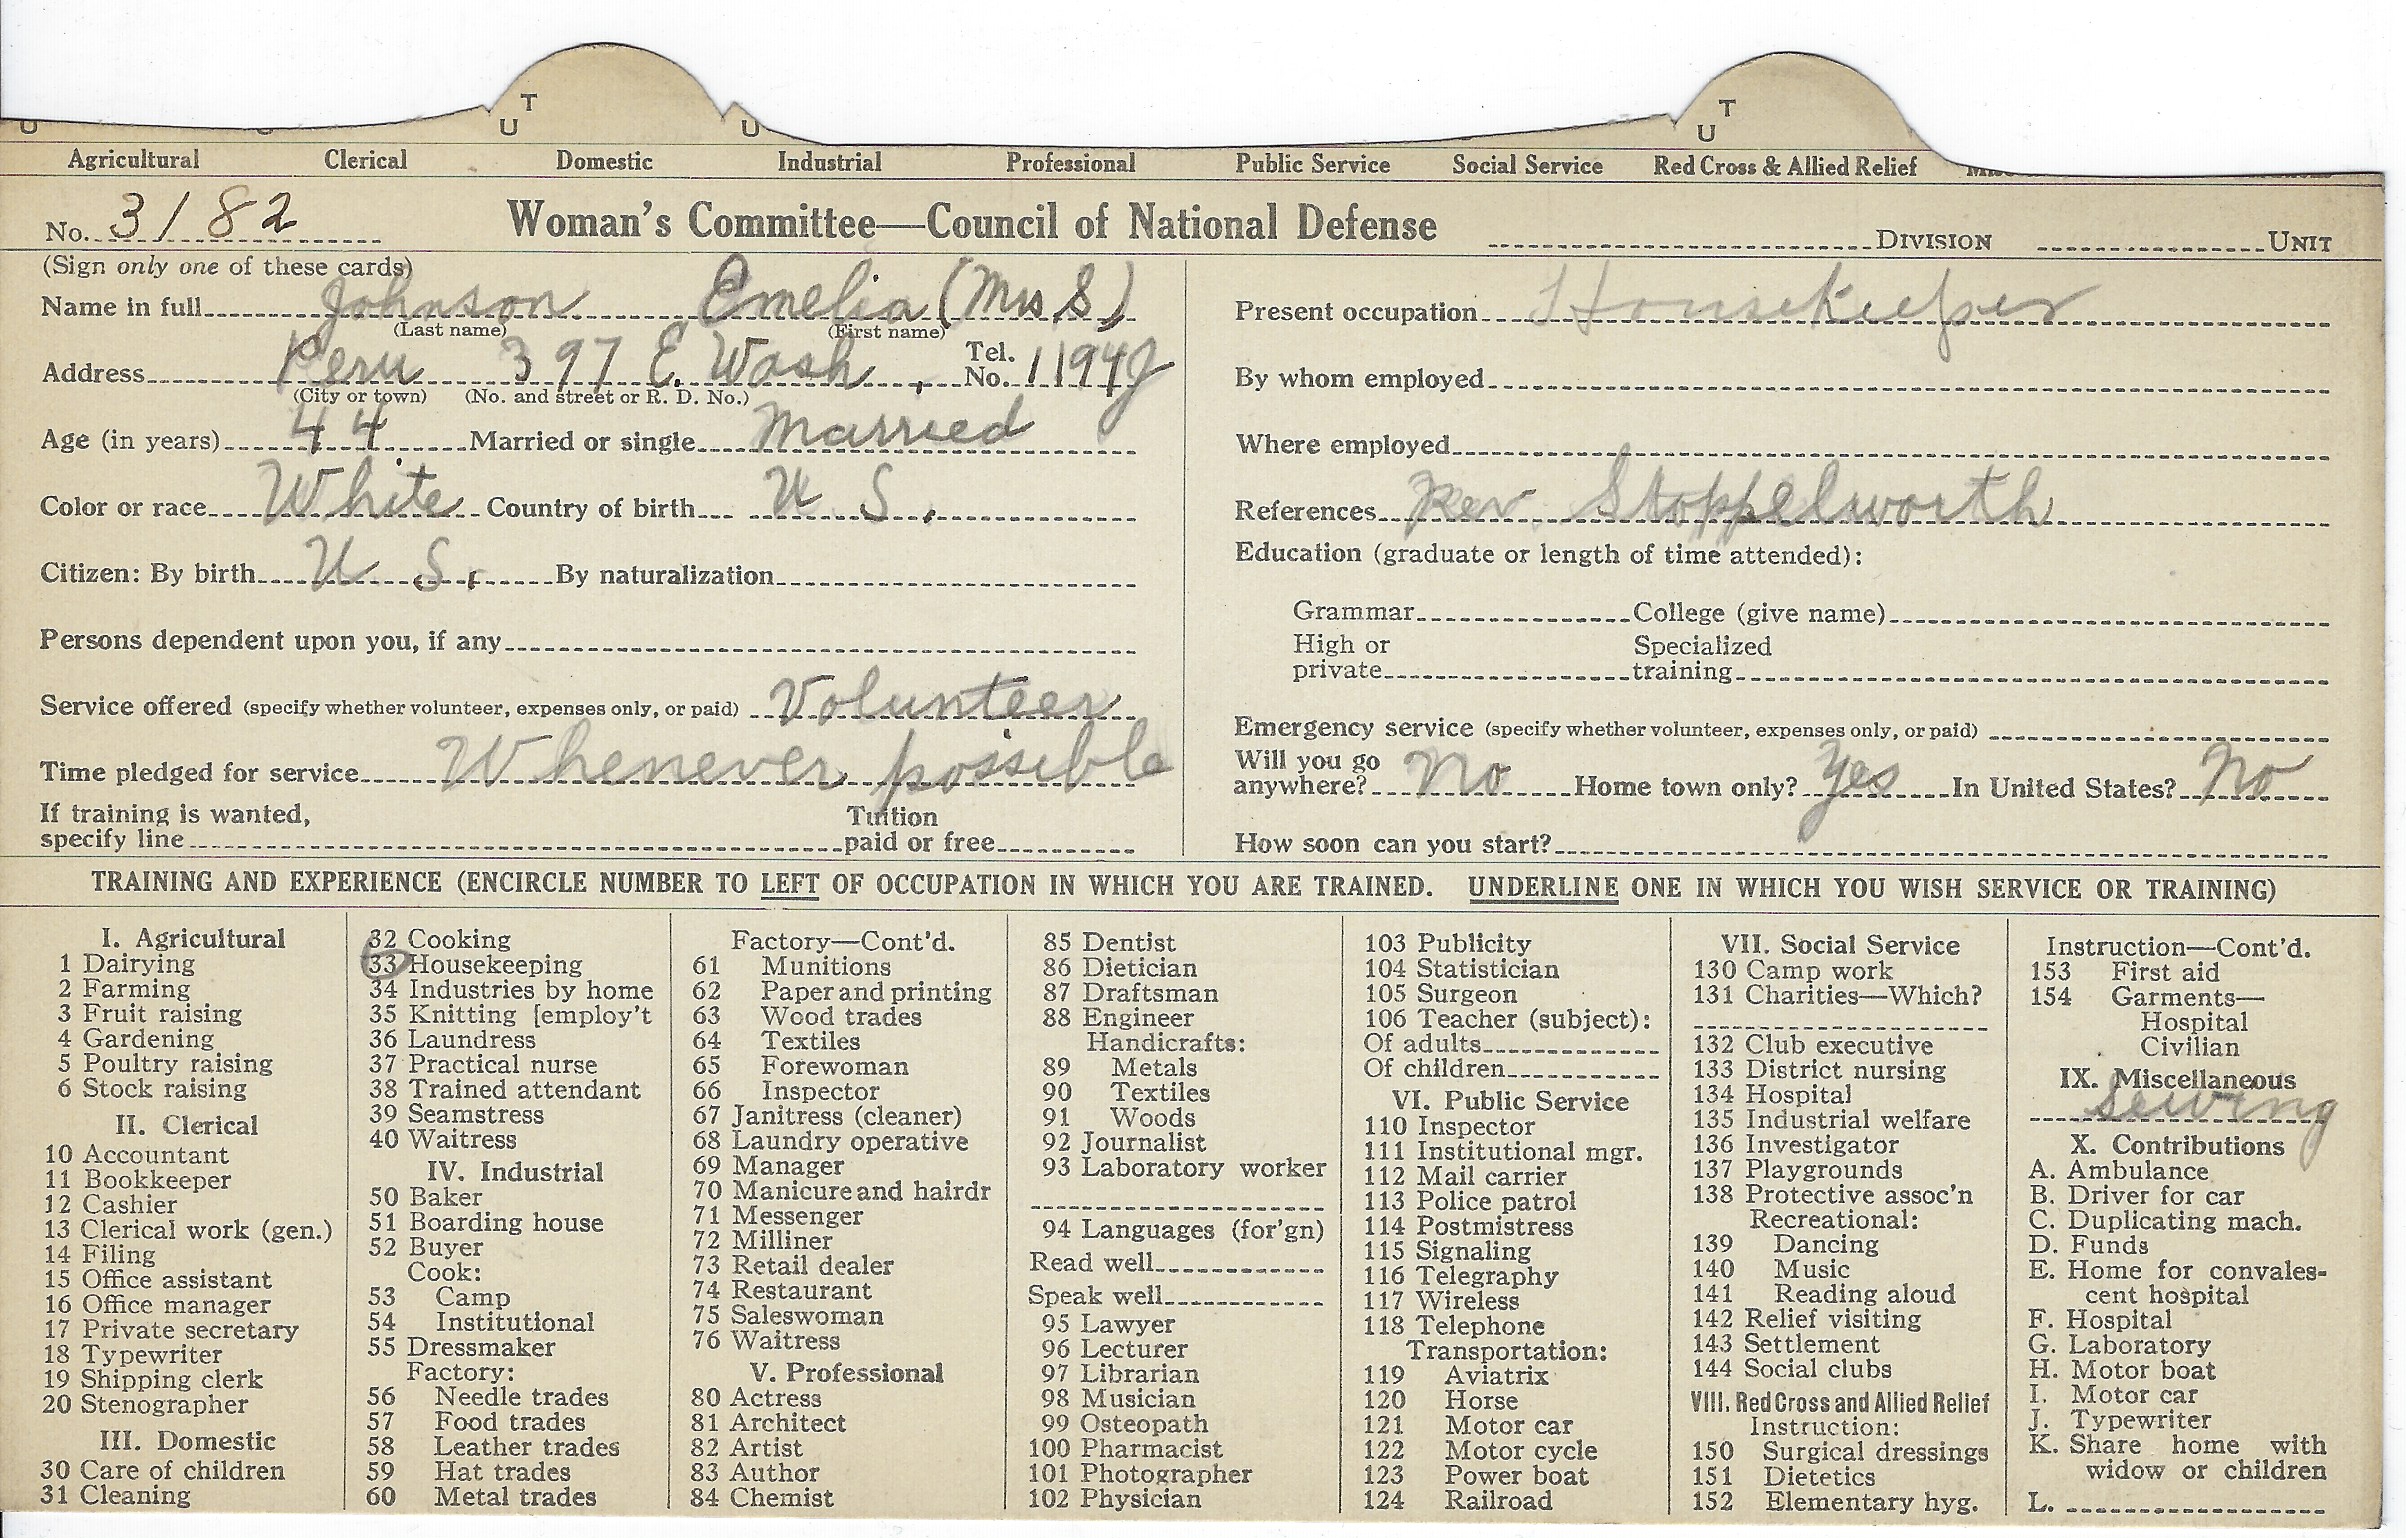 T T
U U U U
Agricultural Clerical Domestic Industrial Professional Public Service Social Service Red Cross & Allied Relief
No. 3182 Woman's Committee—Council of National Defense DIVISION UNIT
(Sign only one of these cards)
Name in full Johnson Emelia (Mrs S)
(Last name) (First name)
Address Peru 397 E. Wash, Tel. No. 1194J
(City or town) (No. and street or R. D. No.)
Age (in years) 44 Married or single Married
Color or race White Country of birth U S.
Citizen: By birth U S. By naturalization
Persons dependent upon you, if any
Service offered (specify whether volunteer, expenses only, or paid) Volunteer
Time pledged for service Whenever possible
If training is wanted, specify line Tuition paid or free
Present occupation Housekeeper
By whom employed
Where employed
References Rev. Stoppelworth
Education (graduate or length of time attended):
Grammar College (give name)
High or private Specialized training
Emergency service (specify whether volunteer, expenses only, or paid)
Will you go anywhere? No Home town only? Yes In United States? No
How soon can you start?
TRAINING AND EXPERIENCE (ENCIRCLE NUMBER TO LEFT OF OCCUPATION IN WHICH YOU ARE TRAINED. UNDERLINE ONE IN WHICH YOU WISH SERVICE OR TRAINING)
I. Agricultural
1 Dairying
2 Farming
3 Fruit raising
4 Gardening
5 Poultry raising
6 Stock raising
II. Clerical
10 Accountant
11 Bookkeeper
12 Cashier
13 Clerical work (gen.)
14 Filing
15 Office assistant
16 Office manager
17 Private secretary
18 Typewriter
19 Shipping clerk
20 Stenographer
III. Domestic
30 Care of children
31 Cleaning
32 Cooking
33 Housekeeping
34 Industries by home
35 Knitting [employ't
36 Laundress
37 Practical nurse
38 Trained attendant
39 Seamstress
40 Waitress
IV. Industrial
50 Baker
51 Boarding house
52 Buyer
Cook:
53 Camp
54 Institutional
55 Dressmaker
Factory:
56 Needle trades
57 Food trades
58 Leather trades
59 Hat trades
60 Metal trades
Factory—Cont'd.
61 Munitions
62 Paper and printing
63 Wood trades
64 Textiles
65 Forewoman
66 Inspector
67 Janitress (cleaner)
68 Laundry operative
69 Manager
70 Manicure and hairdr
71 Messenger
72 Milliner
73 Retail dealer
74 Restaurant
75 Saleswoman
76 Waitress
V. Professional
80 Actress
81 Architect
82 Artist
83 Author
84 Chemist
85 Dentist
86 Dietician
87 Draftsman
88 Engineer
Handicrafts:
89 Metals
90 Textiles
91 Woods
92 Journalist
93 Laboratory worker
94 Languages (for'gn)
Read well
Speak well
95 Lawyer
96 Lecturer
97 Librarian
98 Musician
99 Osteopath
100 Pharmacist
101 Photographer
102 Physician
103 Publicity
104 Statistician
105 Surgeon
106 Teacher (subject):
Of adults
Of children
VI. Public Service
110 Inspector
111 Institutional mgr.
112 Mail carrier
113 Police patrol
114 Postmistress
115 Signaling
116 Telegraphy
117 Wireless
118 Telephone
Transportation:
119 Aviatrix
120 Horse
121 Motor car
122 Motor cycle
123 Power boat
124 Railroad
VII. Social Service
130 Camp work
131 Charities—Which?
132 Club executive
133 District nursing
134 Hospital
135 Industrial welfare
136 Investigator
137 Playgrounds
138 Protective assoc'n
Recreational:
139 Dancing
140 Music
141 Reading aloud
142 Relief visiting
143 Settlement
144 Social clubs
VIII. Red Cross and Allied Relief
Instruction:
150 Surgical dressings
151 Dietetics
152 Elementary hyg.
Instruction—Cont'd.
153 First aid
154 Garments—
Hospital
Civilian
IX. Miscellaneous
Sewing
X. Contributions
A. Ambulance
B. Driver for car
C. Duplicating mach.
D. Funds
E. Home for convales-
cent hospital
F. Hospital
G. Laboratory
H. Motor boat
I. Motor car
J. Typewriter
K. Share home with
widow or children
L.